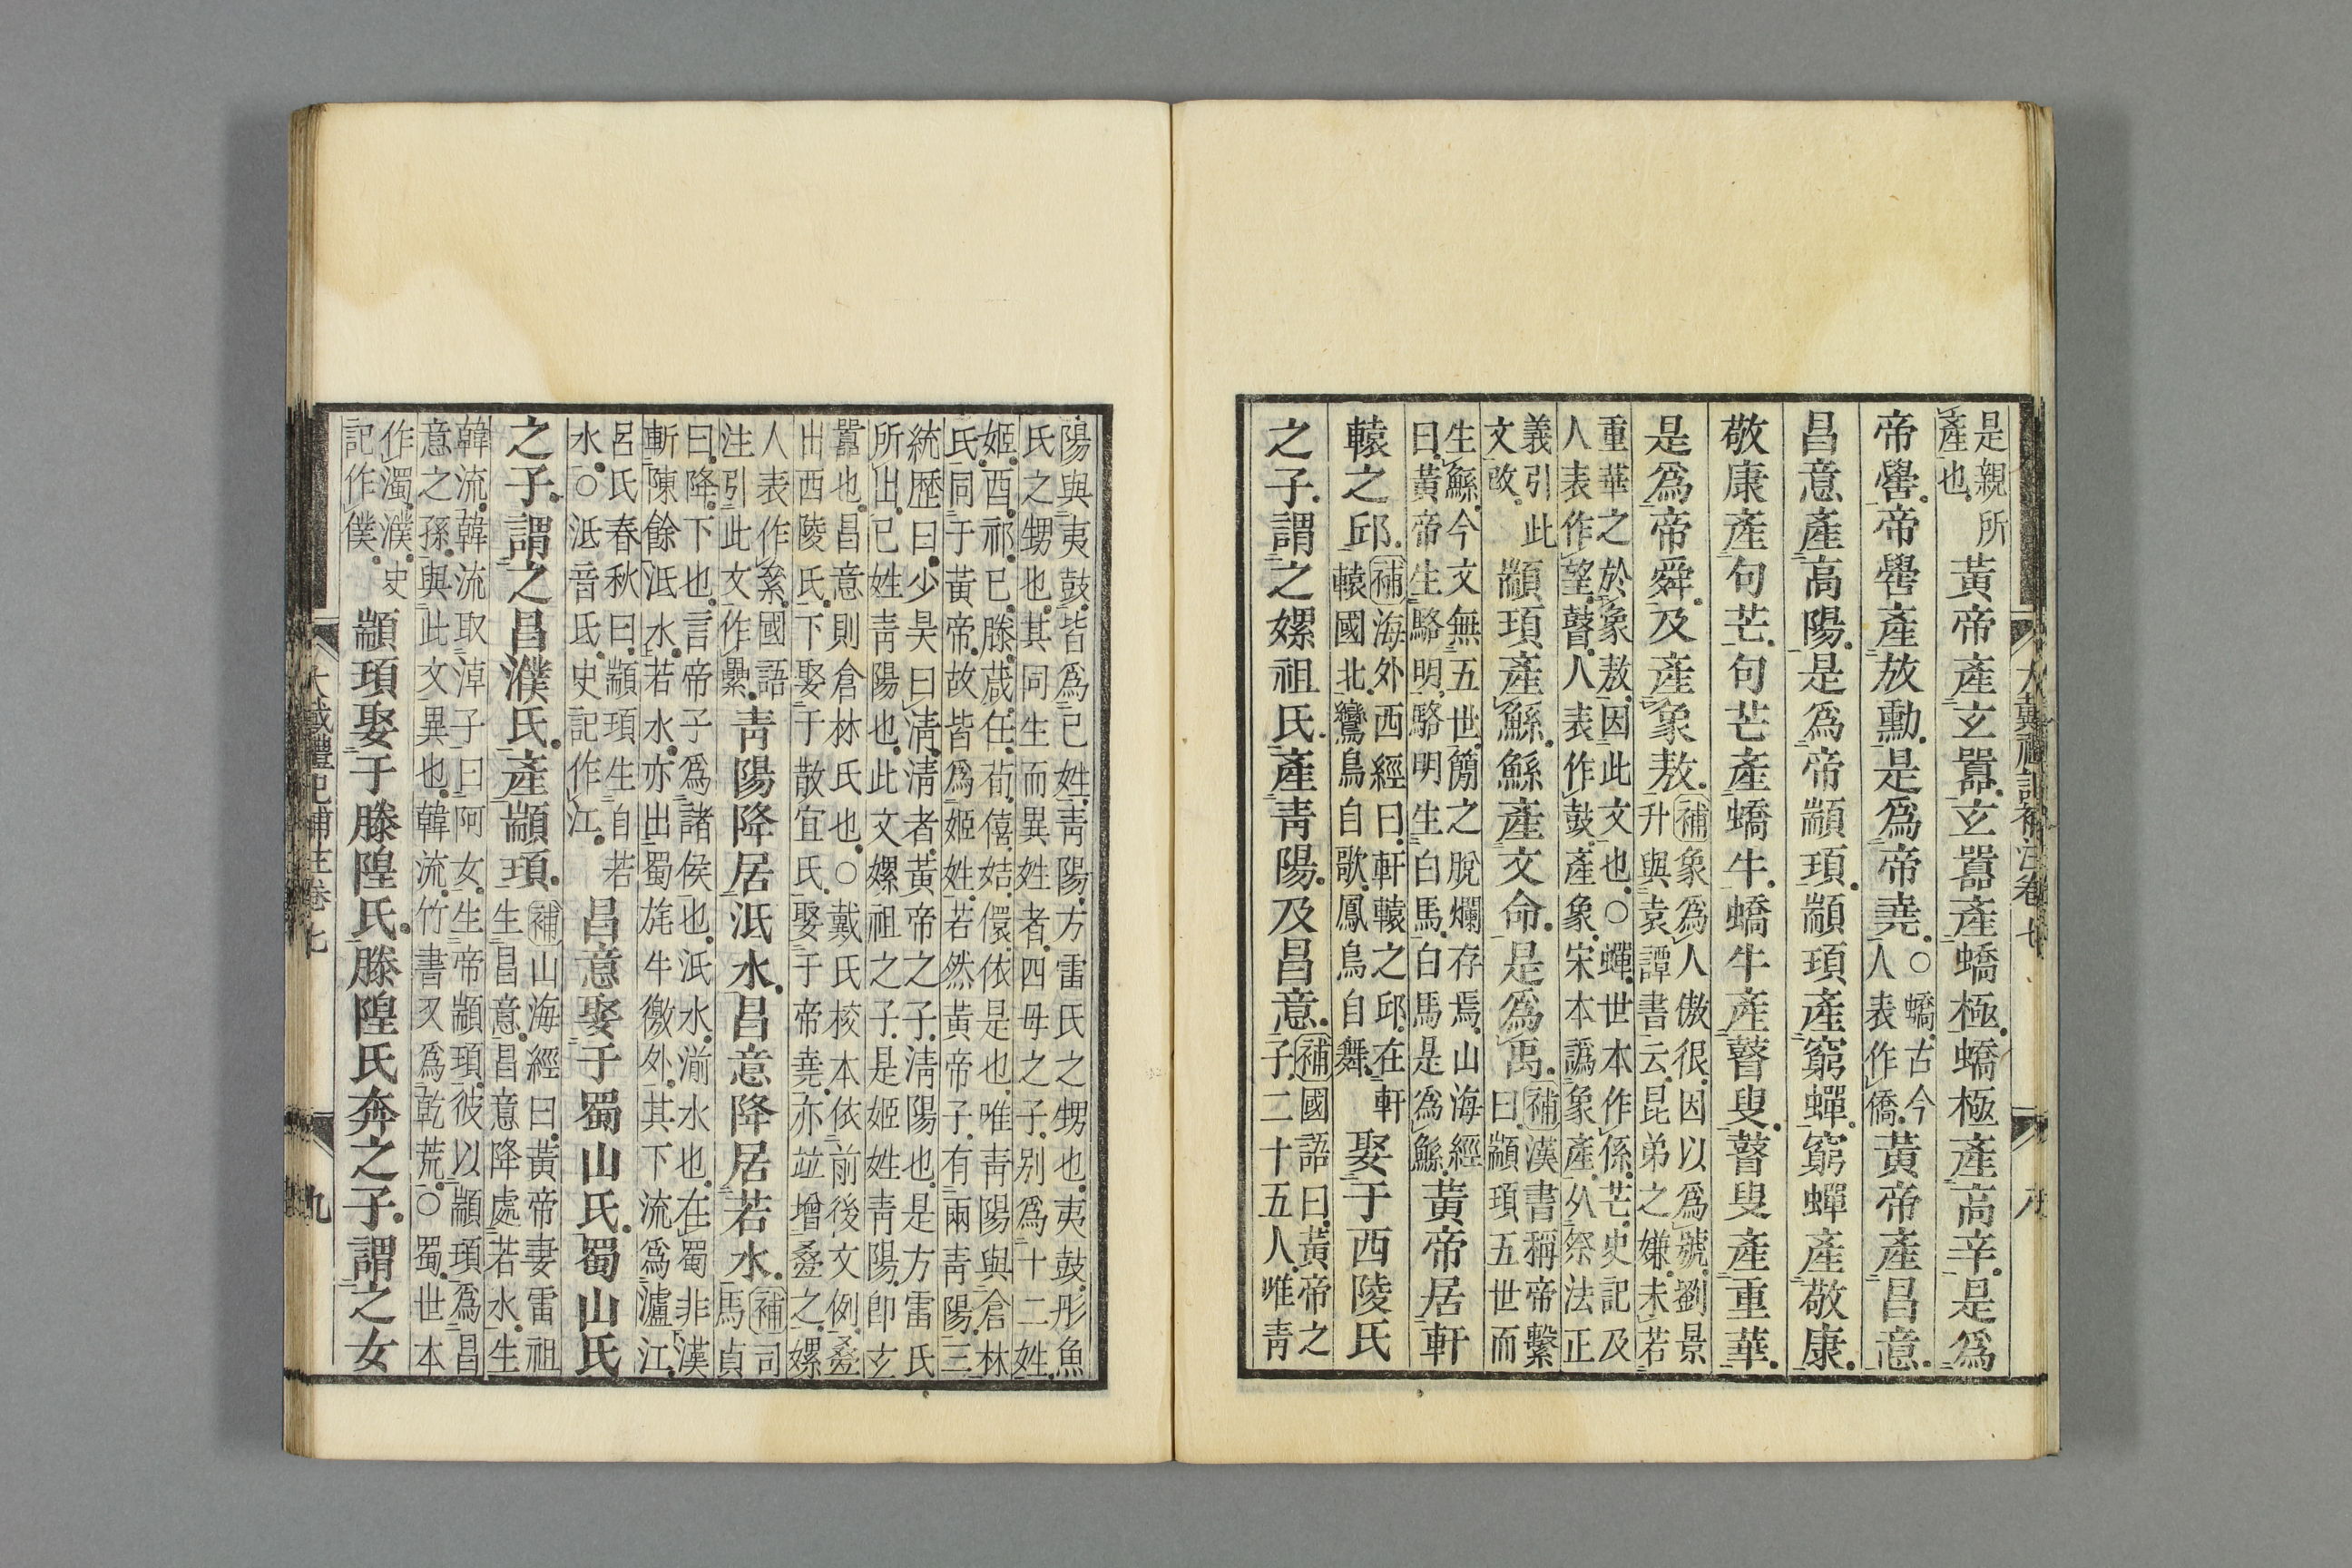 大戴禮記補注卷七 八
是親所
產也
黃帝產玄囂玄囂產蟜極蟜極產高辛是爲
帝嚳帝嚳產放勳是爲帝堯
○蟜古今
人表作僑
黃帝產昌意
昌意產高陽是爲帝顓頊顓頊產窮蟬窮蟬產敬康
敬康產句芒句芒產蟜牛蟜牛產瞽叟瞽叟產重華
是爲帝舜及產象敖
補象爲人傲很因以爲號劉景
升與袁譚書云昆弟之嫌未若
重華之於象敖因此文也○蟬世本作係芒史記及
人表作望瞽人表作鼓產象宋本譌象產从祭法正
義引此
文改
顓頊產鯀鯀產文命是爲禹
補漢書稱帝繫
曰顓頊五世而
生鯀今文無五世簡之脫爛存焉山海經
曰黃帝生駱明駱明生白馬白馬是爲鯀
黃帝居軒
轅之邱
補海外西經曰軒轅之邱在軒
轅國北鸞鳥自歌鳳鳥自舞
娶于西陵氏
之子謂之嫘祖氏產青陽及昌意
補國語曰黃帝之
子二十五人唯青
陽與夷鼓皆爲己姓青陽方雷氏之甥也夷鼓彤魚
氏之甥也其同生而異姓者四母之子別爲十二姓
姬酉祁己滕葴任荀僖姞儇依是也唯青陽與倉林
氏同于黃帝故皆爲姬姓若然黃帝子有兩青陽三
統歷曰少昊曰清清者黃帝之子清陽也是方雷氏
所出己姓青陽也此文嫘祖之子是姬姓青陽卽玄
囂也昌意則倉林氏也○戴氏校本依前後文例叠
出西陵氏下娶于散宜氏娶于帝堯亦竝增叠之嫘
人表作絫國語
注引此文作纍
青陽降居泜水昌意降居若水
補司
馬貞
曰降下也言帝子爲諸侯也泜水湔水也在蜀非漢
斬陳餘泜水若水亦出蜀旄牛徼外其下流爲瀘江
呂氏春秋曰顓頊生自若
水○泜音氐史記作江
昌意娶于蜀山氏蜀山氏
之子謂之昌濮氏產顓頊
補山海經曰黃帝妻雷祖
生昌意昌意降處若水生
韓流韓流取淖子曰阿女生帝顓頊彼以顓頊爲昌
意之孫與此文異也韓流竹書又爲乾荒○蜀世本
作濁濮史
記作僕
顓頊娶于滕隍氏滕隍氏奔之子謂之女
大戴禮記補注卷七 九